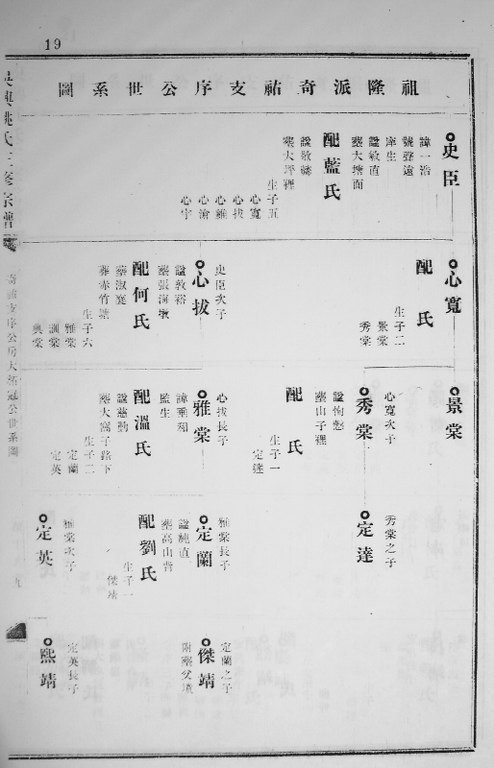 19
祖隆派奇祐支序公世系圖
史臣
諱一浩
號蹤遠
庠生
諡敏直
葬大塘面
配藍氏
諡敏
葬大坪裡
生子五
心寬
心拔
心雅
心渝
心宇
心寬
配 氏
生子二
景棠
秀棠
心拔
史臣次子
諡敦裕
葬張海墩
配何氏
諡淑寬
葬赤竹塘
生子六
雅棠
景棠
秀棠
心寬次子
諡恂愨
葬山子裡
配 氏
生子一
定達
雅棠
心拔長子
諱
監生
配溫氏
諡慈勤
葬大窩子路下
生子二
定蘭
定英
定達
秀棠之子
定蘭
雅棠長子
諡純直
葬高山背
配劉氏
生子一
傑靖
定英
雅棠次子
傑靖
定蘭之子
附葬父墳
熙靖
定英長子
姚氏三修宗譜
奇祐支序公房大
冠公世系圖